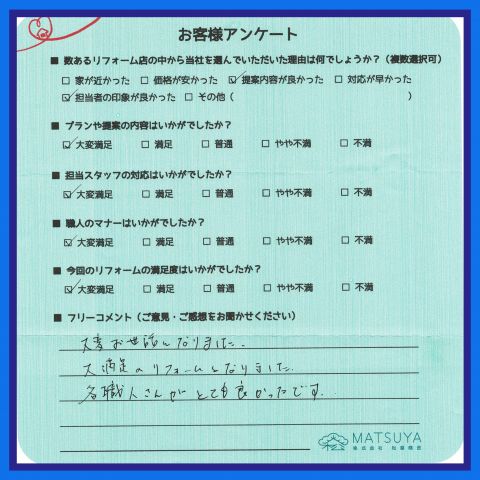 お客様アンケート
■ 数あるリフォーム店の中から当社を選んでいただいた理由は何でしょうか?(複数選択可)
☐ 家が近かった ☐ 価格が安かった ☑ 提案内容が良かった ☐ 対応が早かった
☑ 担当者の印象が良かった ☐ その他( )
■ プランや提案の内容はいかがでしたか?
☑ 大変満足 ☐ 満足 ☐ 普通 ☐ やや不満 ☐ 不満
■ 担当スタッフの対応はいかがでしたか?
☑ 大変満足 ☐ 満足 ☐ 普通 ☐ やや不満 ☐ 不満
■ 職人のマナーはいかがでしたか?
☑ 大変満足 ☐ 満足 ☐ 普通 ☐ やや不満 ☐ 不満
■ 今回のリフォームの満足度はいかがでしたか?
☑ 大変満足 ☐ 満足 ☐ 普通 ☐ やや不満 ☐ 不満
■ フリーコメント(ご意見・ご感想をお聞かせください)
大変お世話になりました。
大満足のリフォームとなりました。
各職人さんがとても良かったです。
MATSUYA
株式会社